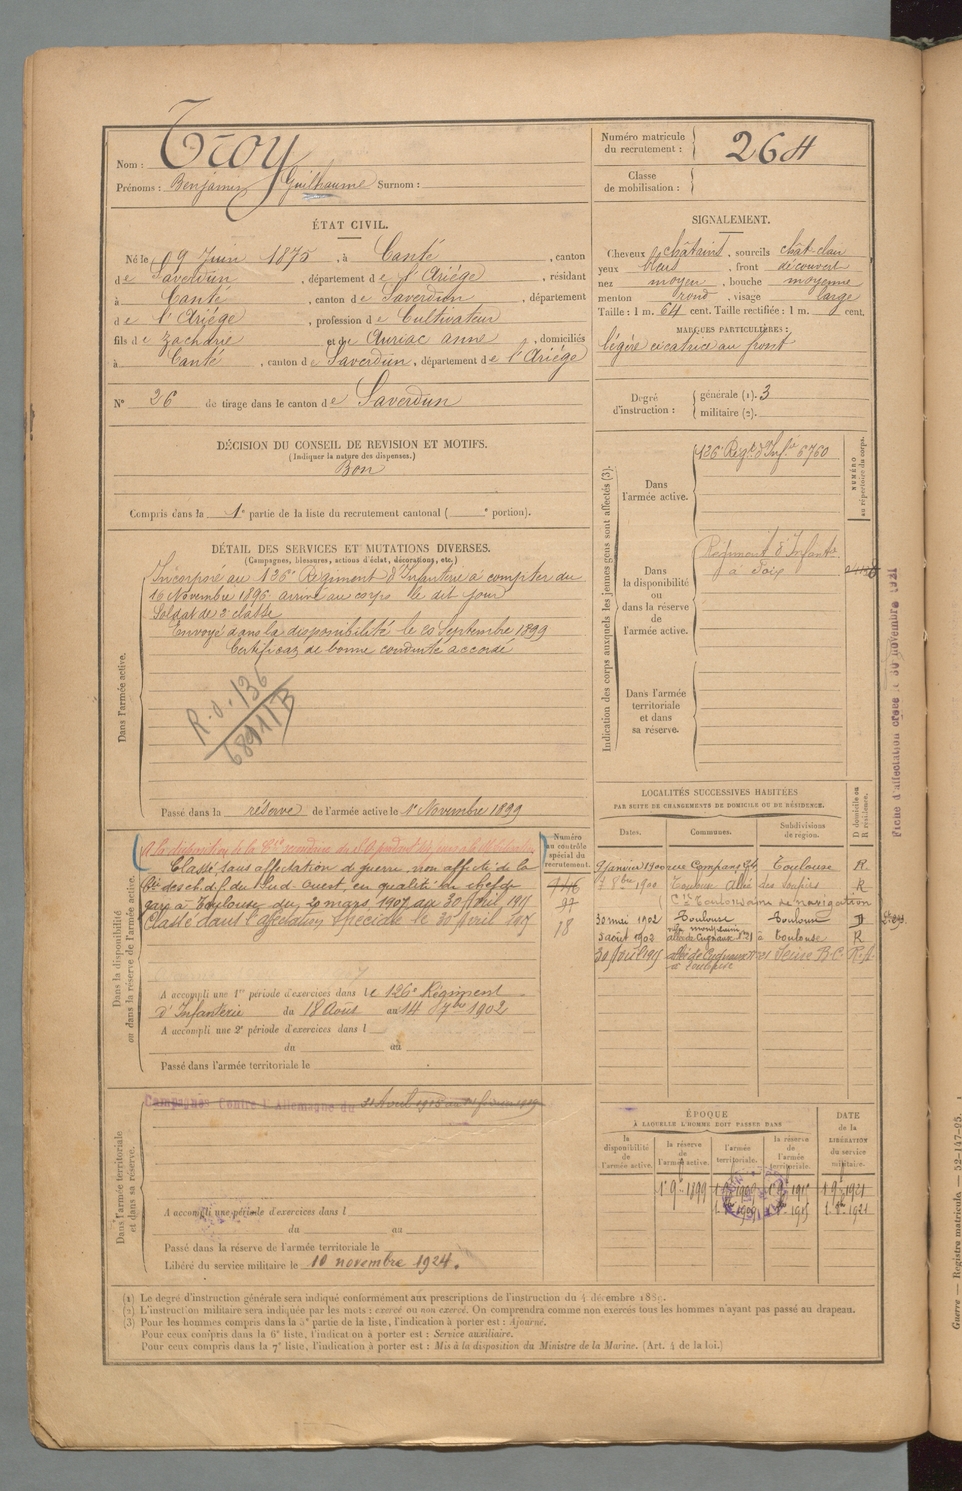 Nom : Troy
Prénoms : Benjamin Guilhaume Surnom :
Numéro matricule du recrutement : 264
Classe de mobilisation :
ÉTAT CIVIL.
Né le 9 Juin 1875, à Canté, canton
de Saverdun, département de l'Ariége, résidant
à Canté, canton de Saverdun, département
de l'Ariége, profession de Cultivateur
fils de Zacharie et de Auriac anne, domiciliés
à Canté, canton de Saverdun, département de l'Ariége
N° 26 de tirage dans le canton de Saverdun
SIGNALEMENT.
Cheveux châtains, sourcils chât-clair
yeux bleus, front découvert
nez moyen, bouche moyenne
menton rond, visage large
Taille : 1 m. 64 cent. Taille rectifiée : 1 m. cent.
MARQUES PARTICULIÈRES :
légère cicatrice au front
Degré d'instruction : générale (1). 3
militaire (2).
DÉCISION DU CONSEIL DE REVISION ET MOTIFS.
(Indiquer la nature des dispenses.)
Bon
Compris dans la 1e partie de la liste du recrutement cantonal ( e portion).
Indication des corps auxquels les jeunes gens sont affectés (3).
NUMÉRO au répertoire du corps.
Dans l'armée active.
126e Régt d'Infie 6760
Dans la disponibilité ou dans la réserve de l'armée active.
Régiment d'Infante
à Foix
Dans l'armée territoriale et dans sa réserve.
DÉTAIL DES SERVICES ET MUTATIONS DIVERSES.
(Campagnes, blessures, actions d'éclat, décorations, etc.)
Dans l'armée active.
Incorporé au 126e Régiment d'Infanterie à compter du
16 Novembre 1896 arrivé au corps le dit jour
Soldat de 2e classe
Envoyé dans la disponibilité le 20 Septembre 1899
Certificat de bonne conduite accordé
R.O. 136
Passé dans la réserve de l'armée active le 1er Novembre 1899
Fiche d'affectation créée le 30 novembre 1921
LOCALITÉS SUCCESSIVES HABITÉES
PAR SUITE DE CHANGEMENTS DE DOMICILE OU DE RÉSIDENCE.
Dates. Communes. Subdivisions de région. D domicile ou R résidence.
9 janvier 1900 Toulouse R
Toulouse Allée des Soupirs R
Cie Toulousaine de navigation
30 mai 1902 Toulouse Toulouse D
3 août 1902 allée de Cugnaux Toulouse R
à Toulouse
Dans la disponibilité ou dans la réserve de l'armée active.
Numéro au contrôle spécial du recrutement.
Classé sans affectation de guerre, non affecté de la
Cie des ch. d. f. du Sud Ouest, en qualité de chef de
gare à Toulouse du 20 mars 1907 au 30 Avril 1917
Classé dans l'affectation spéciale le 30 Avril 1917
18
A accompli une 1re période d'exercices dans le 126e Régiment
d'Infanterie du 18 Août au 14 7bre 1902
A accompli une 2e période d'exercices dans l
du au
Passé dans l'armée territoriale le
Dans l'armée territoriale et dans sa réserve.
Campagnes Contre l'Allemagne du
A accompli une période d'exercices dans l
du au
Passé dans la réserve de l'armée territoriale le
Libéré du service militaire le 10 novembre 1924.
ÉPOQUE
À LAQUELLE L'HOMME DOIT PASSER DANS
la disponibilité de l'armée active.
la réserve de l'armée active.
l'armée territoriale.
la réserve de l'armée territoriale.
DATE de la LIBÉRATION du service militaire.
(1) Le degré d'instruction générale sera indiqué conformément aux prescriptions de l'instruction du 4 décembre 1889.
(2) L'instruction militaire sera indiquée par les mots : exercé ou non exercé. On comprendra comme non exercés tous les hommes n'ayant pas passé au drapeau.
(3) Pour les hommes compris dans la 5e partie de la liste, l'indication à porter est : Ajourné.
Pour ceux compris dans la 6e liste, l'indication à porter est : Service auxiliaire.
Pour ceux compris dans la 7e liste, l'indication à porter est : Mis à la disposition du Ministre de la Marine. (Art. 4 de la loi.)
Guerre — Registre matricule — 52-147-95.